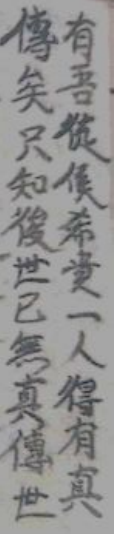 有吾從侯希贵一人得有真
傳矣只知後世已無真傳世